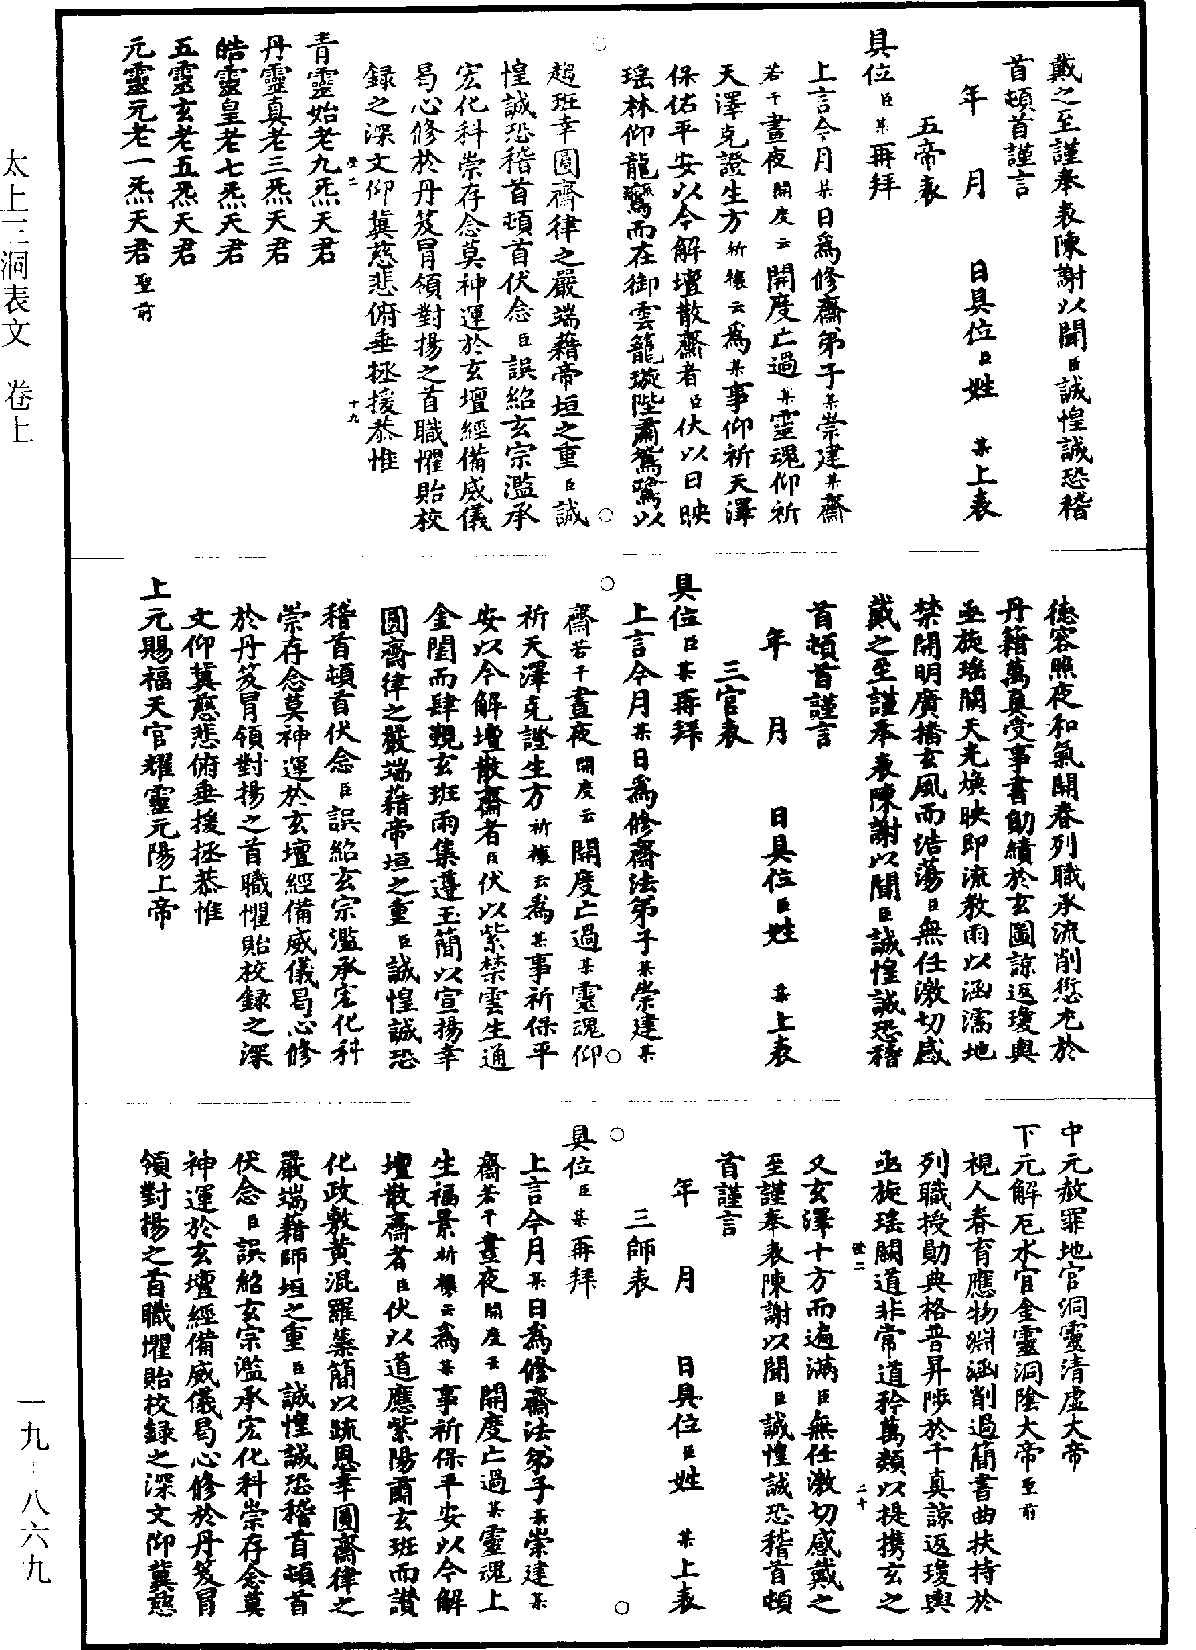 戴之至謹奉表陳謝以聞臣誠惶誠恐稽
首頓首謹言
年　月　日具位臣姓　某上表
五帝表
具位臣某再拜
上言今月某日爲修齋弟子某崇建某齋
若干晝夜開度云開度亡過某靈魂仰祈
天澤克證生方祈禳云爲某事仰祈天澤
保佑平安以今解壇散齋者臣伏以日映
瑶林仰龍驂而在御雲籠璇陛肅鴛鷺以
趨班幸圓齋律之嚴端藉帝垣之重臣誠
惶誠恐稽首頓首伏念臣誤紹玄宗濫承
宏化科崇存念莫神運於玄壇經備威儀
曷心修於丹笈冐領對揚之首職懼貽校
録之深文仰冀慈悲俯垂拯援恭惟
青靈始老九炁天君
丹靈真老三炁天君
皓靈皇老七炁天君
五靈玄老五炁天君
元靈元老一炁天君聖前
十九
德容照夜和氣開春列職承流削愆尤於
丹籍萬真受事書勛績於玄圖諒返瓊輿
亟旋瑶闕天光煥映即流教雨以涵濡地
禁開明廣播玄風而浩蕩臣無任激切感
戴之至謹奉表陳謝以聞臣誠惶誠恐稽
首頓首謹言
年　月　日具位臣姓　某上表
三官表
具位臣某再拜
上言今月某日爲修齋法弟子某崇建某
齋若干晝夜開度云開度亡過某靈魂仰
祈天澤克證生方祈禳云爲某事祈保平
安以今解壇散齋者臣伏以紫禁雲生通
金闺而肆覲玄班雨集遵玉簡以宣揚幸
圓齋律之嚴端藉帝垣之重臣誠惶誠恐
稽首頓首伏念臣誤紹玄宗濫承宏化科
崇存念莫神運於玄壇經備威儀曷心修
於丹笈冐領對揚之首職懼貽校録之深
文仰冀慈悲俯垂援拯恭惟
上元賜福天官耀靈元陽上帝
中元赦罪地官洞靈清虚大帝
下元解厄水官金靈洞陰大帝聖前
視人春育應物淵涵削過簡書曲扶持於
列職授勛典格普昇陟於千真諒返瓊輿
亟旋瑶闕道非常道矜萬類以提携玄之
二十
又玄澤十方而遍滿臣無任激切感戴之
至謹奉表陳謝以聞臣誠惶誠恐稽首頓
首謹言
年　月　日具位臣姓　某上表
三師表
具位臣某再拜
上言今月某日爲修齋法弟子某崇建某
齋若干晝夜開度云開度亡過某靈魂上
生福景祈禳云爲某事祈保平安以今解
壇散齋者臣伏以道應紫陽肅玄班而讃
化政敷黄混羅蘂簡以疏恩幸圓齋律之
嚴端藉師垣之重臣誠惶誠恐稽首頓首
伏念臣誤紹玄宗濫承宏化科崇存念莫
神運於玄壇經備威儀曷心修於丹笈冐
領對揚之首職懼貽校録之深文仰冀慈
太上三洞表文　卷上
一九－八六九